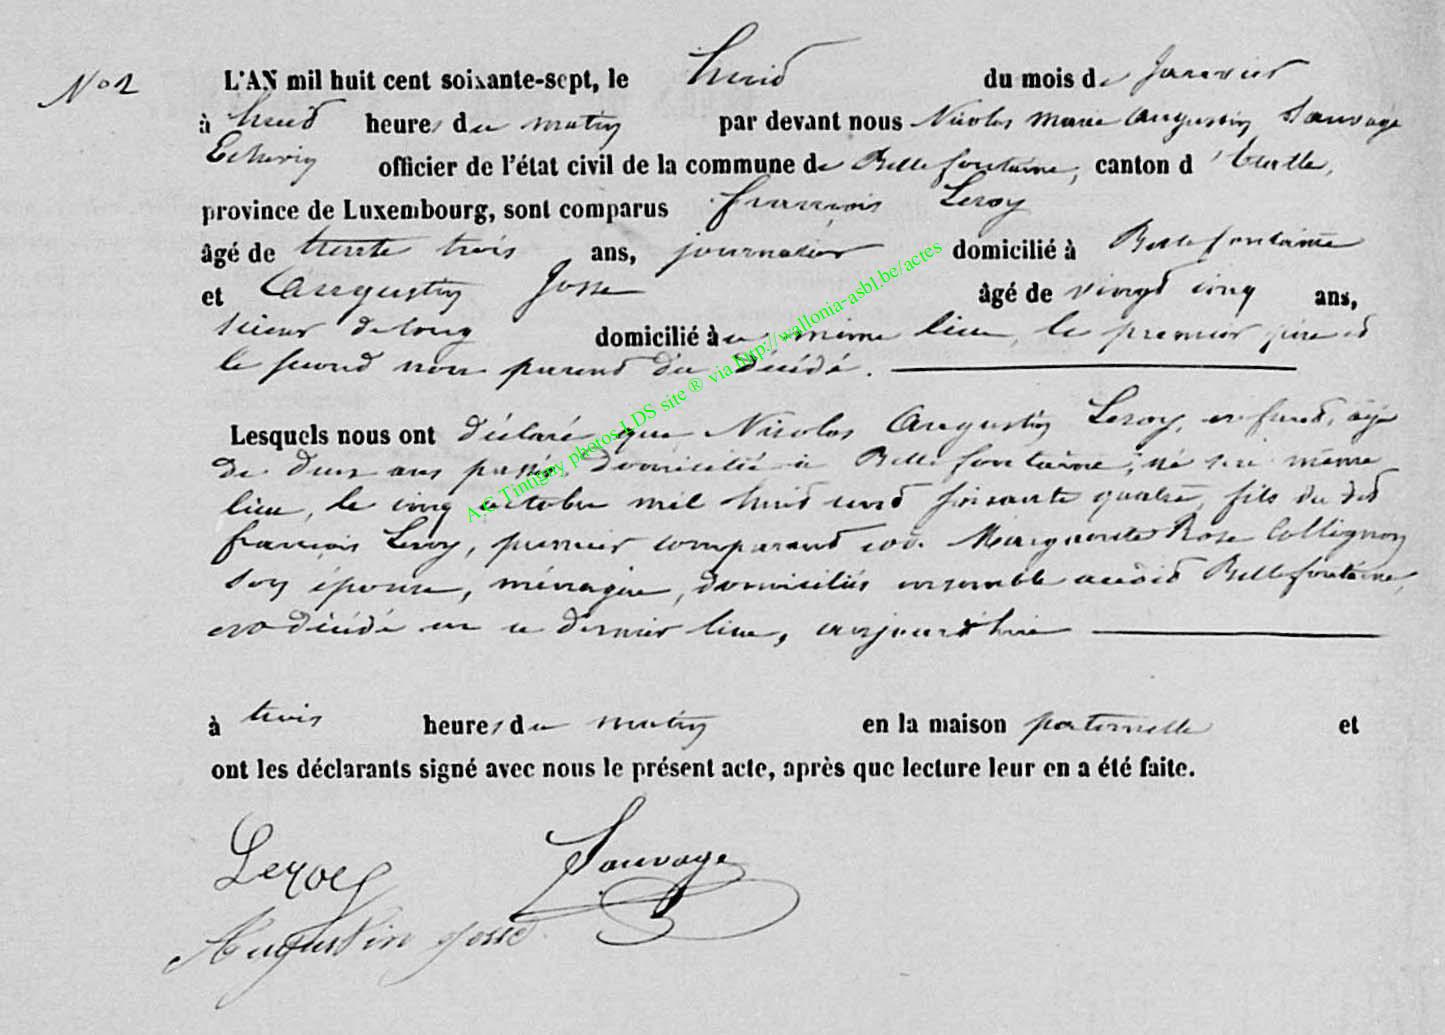 N° 2
L'AN mil huit cent soixante-sept, le huit du mois de Janvier
à huit heures du matin par devant nous Nicolas Marie Augustin Sauvage
Echevin officier de l'état civil de la commune de Bellefontaine, canton d'Etalle,
province de Luxembourg, sont comparus françois Leroy
âgé de trente trois ans, journalier domicilié à Bellefontaine
et Augustin Josse âgé de vingt cinq ans,
scieur de long domicilié au même lieu, le premier père et
le second non parent du décédé.
Lesquels nous ont déclaré que Nicolas Augustin Leroy, enfant, âgé
de deux ans passés, domicilié à Bellefontaine, né au même
lieu, le cinq octobre mil huit cent soixante quatre, fils du dit
françois Leroy, premier comparant et de Marguerite Rose Collignon
son épouse, ménagère, domiciliés ensemble audit Bellefontaine,
est décédé en ce dernier lieu, aujourd'hui
à trois heures du matin en la maison paternelle et
ont les déclarants signé avec nous le présent acte, après que lecture leur en a été faite.
Leroy Sauvage
Augustin Josse
A.C Tintigny photos LDS site ® via http://wallonia-asbl.be/actes